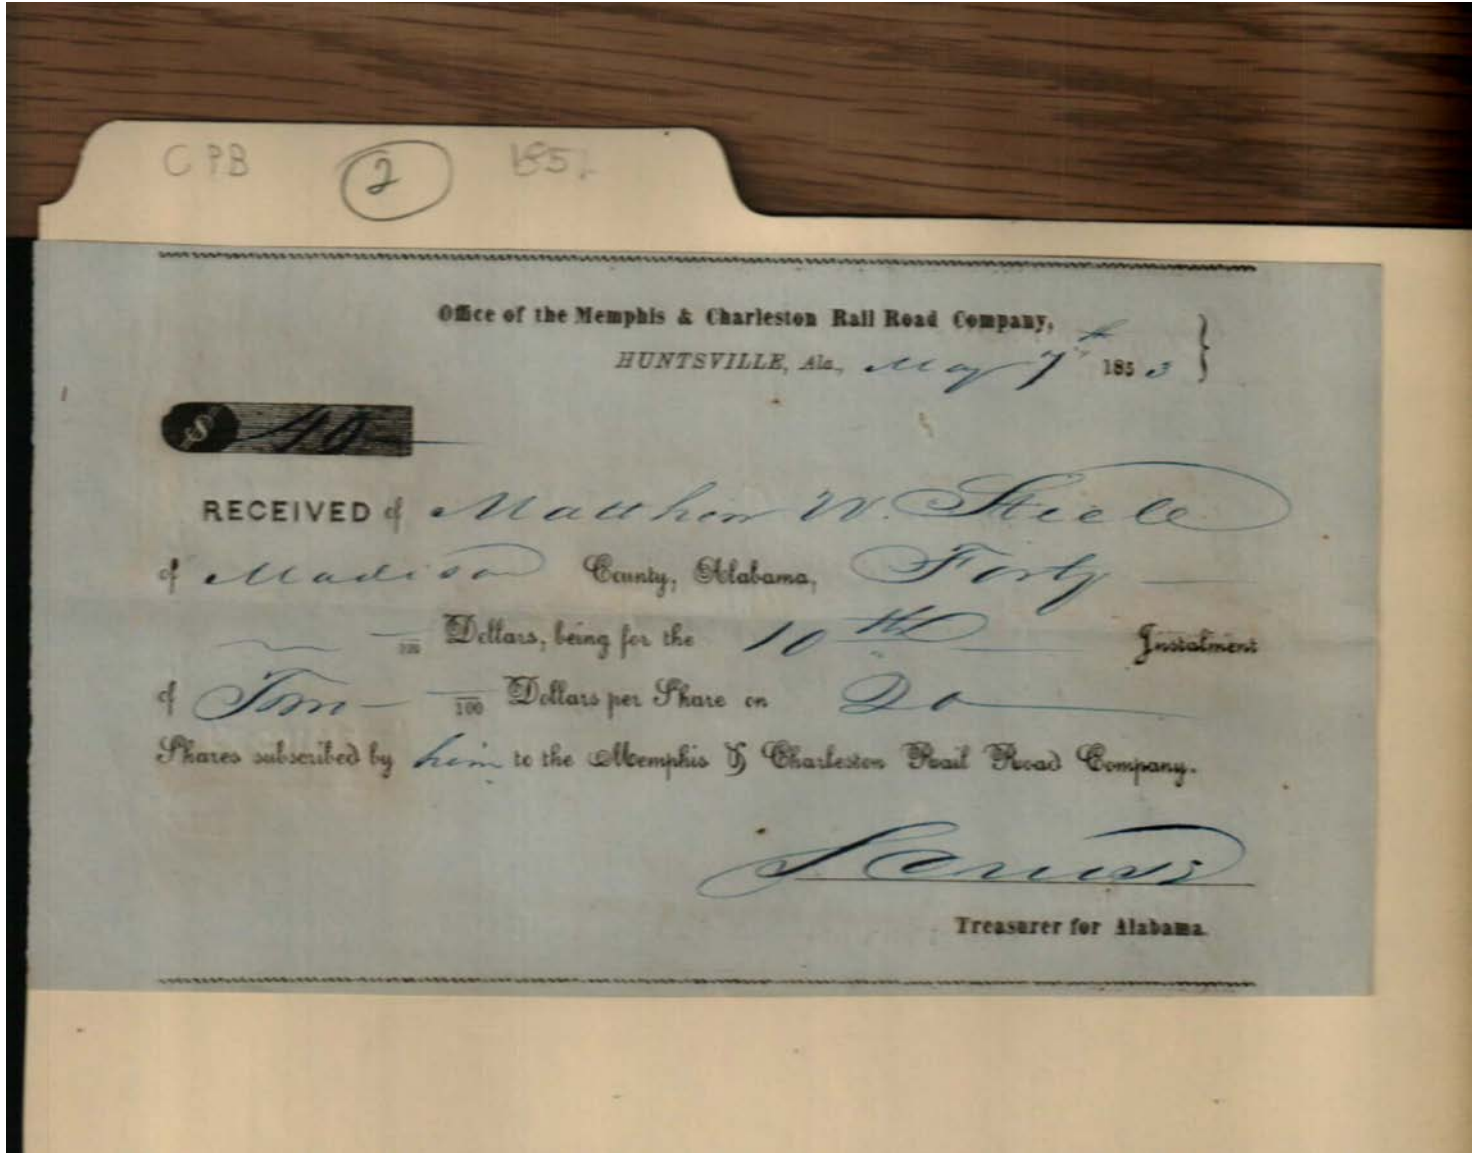 CPB 2
Office of the Memphis & Charleston Rail Road Company,
HUNTSVILLE, Ala., May 7th 1853
$ 40
RECEIVED of Matthew W. Steele
of Madison County, Alabama, Forty
100 Dollars, being for the 10th Instalment
of Two 100 Dollars per Share on 20
Shares subscribed by him to the Memphis & Charleston Rail Road Company.
S Cruse
Treasurer for Alabama.